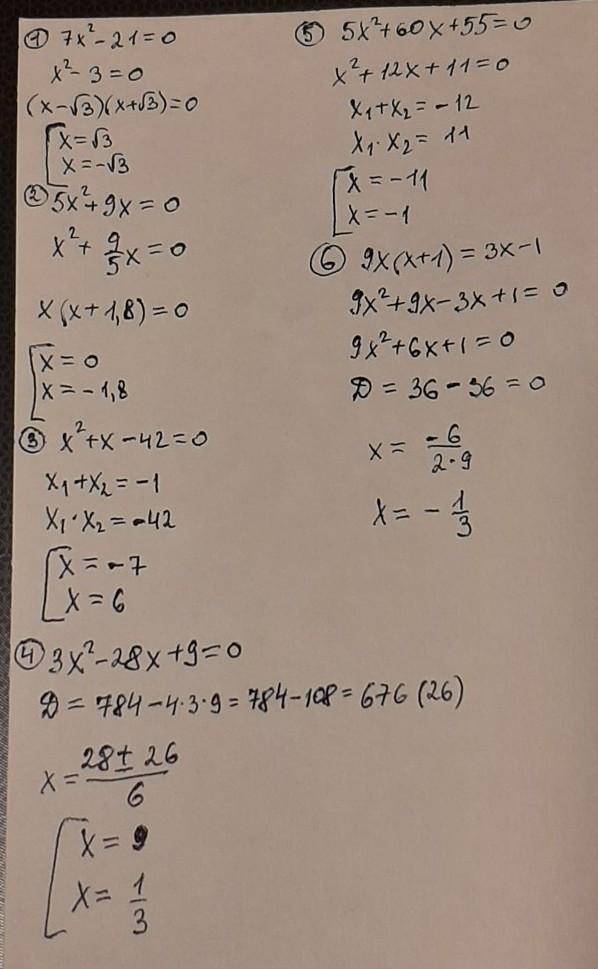 ① 7x²-21=0
x²-3=0
(x-√3)(x+√3)=0
[x=√3
x=-√3
② 5x²+9x=0
x²+9/5x=0
x(x+1,8)=0
[x=0
x=-1,8
③ x²+x-42=0
x₁+x₂=-1
x₁·x₂=-42
[x=-7
x=6
④ 3x²-28x+9=0
D=784-4·3·9=784-108=676 (26)
x=28±26/6
[x=9
x=1/3
⑤ 5x²+60x+55=0
x²+12x+11=0
x₁+x₂=-12
x₁·x₂=11
[x=-11
x=-1
⑥ 9x(x+1)=3x-1
9x²+9x-3x+1=0
9x²+6x+1=0
D=36-36=0
x=-6/2·9
x=-1/3